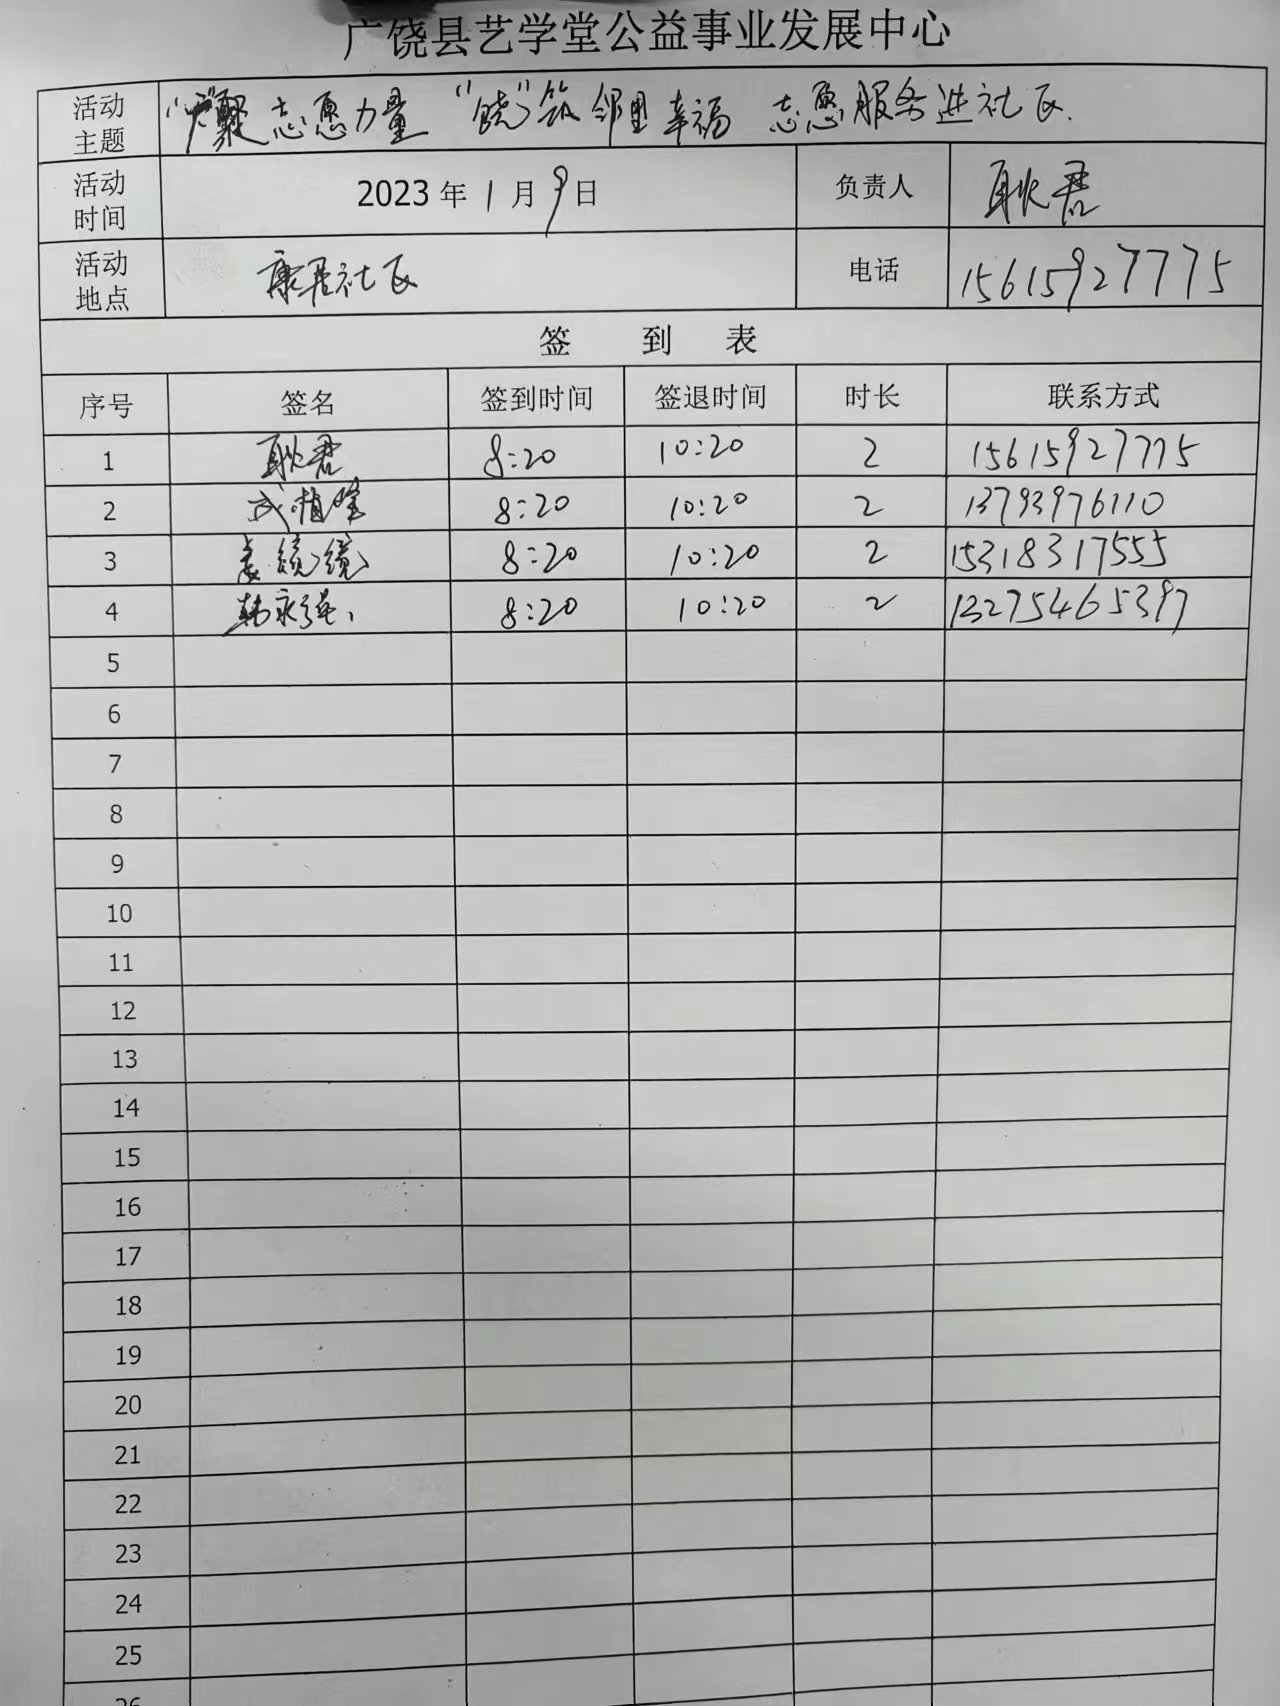 广饶县艺学堂公益事业发展中心
活动主题 “广”聚志愿力量 “饶”筑邻里幸福 志愿服务进社区.
活动时间 2023年1月9日 负责人 耿君
活动地点 康居社区 电话 15615927775
签 到 表
序号 签名 签到时间 签退时间 时长 联系方式
1 耿君 8:20 10:20 2 15615927775
2 8:20 10:20 2 13793976110
3 8:20 10:20 2 15318317555
4 韩永强 8:20 10:20 2 13275465397
5
6
7
8
9
10
11
12
13
14
15
16
17
18
19
20
21
22
23
24
25
26